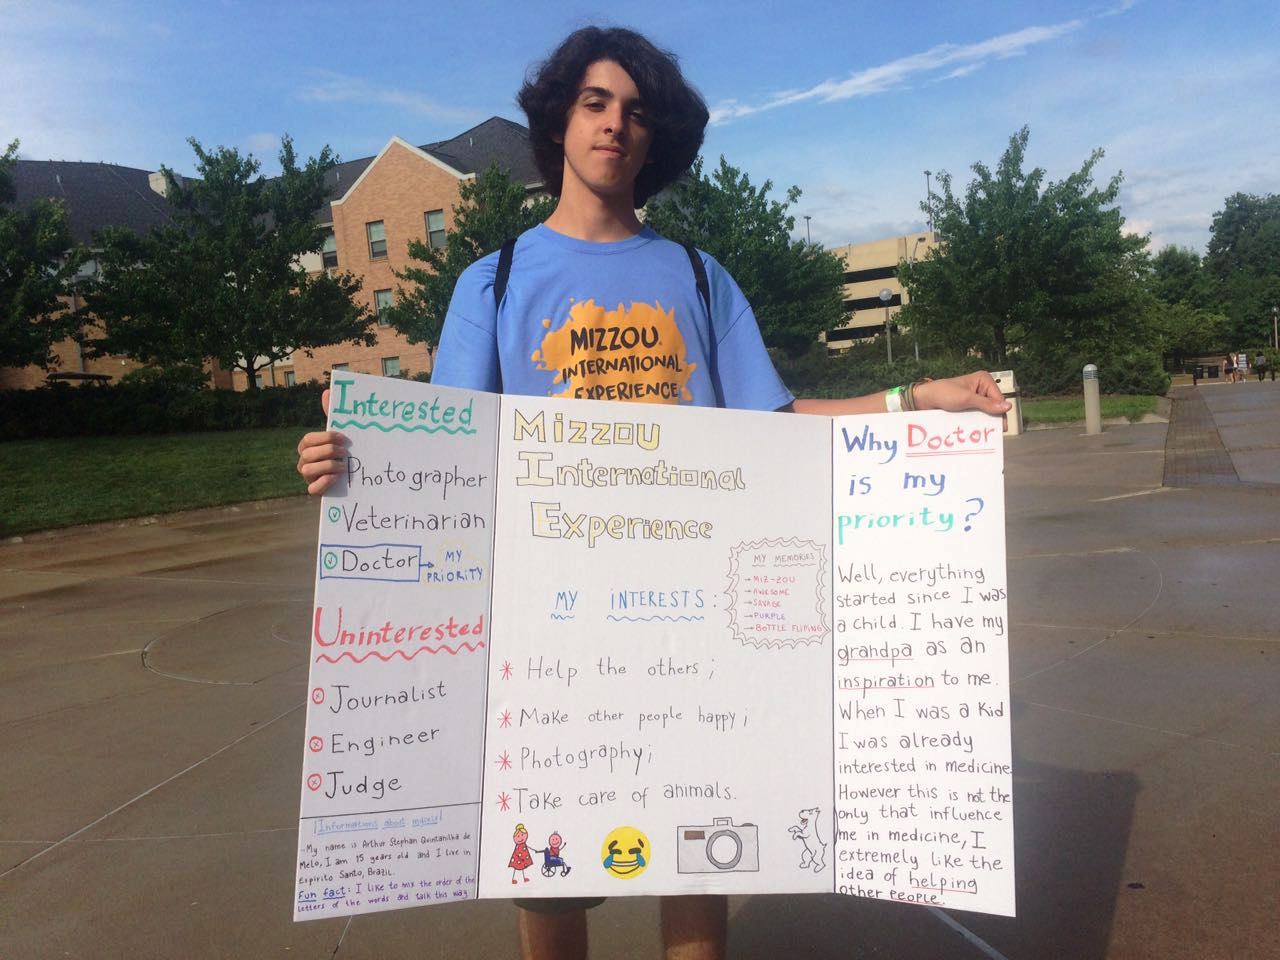 MIZZOU
INTERNATIONAL
EXPERIENCE
Interested
Photographer
Veterinarian
Doctor
MY
PRIORITY
Uninterested
Journalist
Engineer
Judge
Informations about
- My name is Arthur Stephan Quintanilha de
Melo, I am 15 years old and I live in
Espirito Santo, Brazil.
Fun fact: I like to mix the order of the
letters of the words and talk this way
Mizzou
International
Experience
MY INTERESTS:
MY MEMORIES
→ MIZ-ZOU
→ AWESOME
→ SAVAGE
→ PURPLE
→ BOTTLE FLIPING
* Help the others;
* Make other people happy;
* Photography;
* Take care of animals.
Why Doctor
is my
priority?
Well, everything
started since I was
a child. I have my
grandpa as an
inspiration to me.
When I was a Kid
I was already
interested in medicine
However this is not the
only that influence
me in medicine, I
extremely like the
idea of helping
other people.